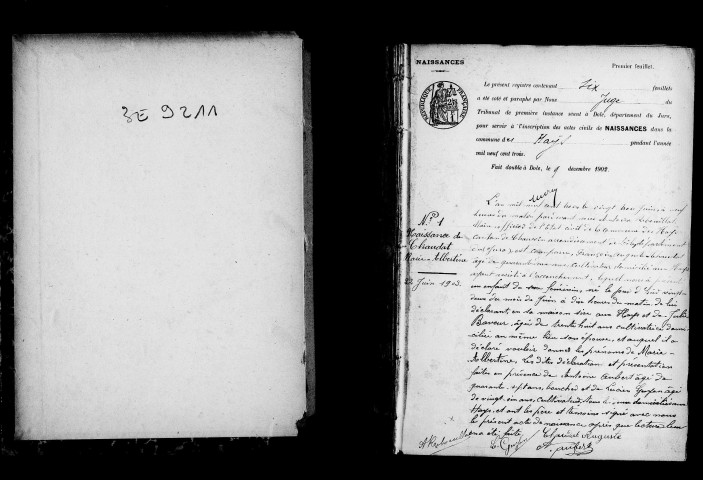 3E 9211
NAISSANCES
Premier feuillet.
RÉPUBLIQUE FRANÇAISE
Le présent registre contenant Six feuillets
a été coté et paraphé par Nous Juge du
Tribunal de première instance séant à Dole, département du Jura,
pour servir à l'inscription des actes civils de NAISSANCES dans la
commune des Hays pendant l'année
mil neuf cent trois.
Fait double à Dole, le décembre 1902.
N° 1
Naissance de
Chaudat
Marie-Albertine
22 Juin 1903.
L'an mil neuf cent trois le vingt trois juin à neuf
heures du matin par devant nous
Maire officier de l'état civil de la commune des Hays
canton de Chaussin arrondissement de Dole département
du Jura, est comparu, Auguste
âgé de quarante ans cultivateur domicilié aux Hays
ayant assisté à l'accouchement, lequel nous a présenté
un enfant de sexe féminin, né le jour d'hier vingt-
deux du mois de Juin à dix heures du matin de lui
déclarant, en sa maison sise aux Hays et de Julie
âgée de trente huit ans cultivatrice domi-
ciliée au même lieu son épouse, et auquel il a
déclaré vouloir donner les prénoms de Marie-
Albertine. Les dites déclaration et présentation
faites en présence de Antoine Aubert âgé de
quarante-sept ans, boucher et de Lucien âgé
de vingt-cinq ans, cultivateur, tous deux domiciliés aux
Hays, et ont les père et témoins signé avec nous
le présent acte de naissance, après que lecture leur
en a été faite.
Auguste
A. Aubert